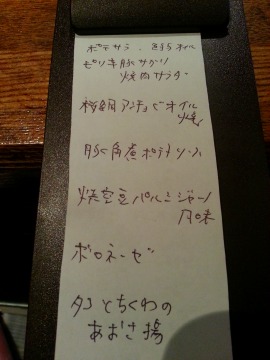 ポテサラ、きまぐれオイル
ピリ辛豚サガリ
焼肉サラダ
桜鯛アンチョビオイル
焼
豚角煮ポテトソース
焼空豆パルミジャーノ
風味
ボロネーゼ
タコとちくわの
あおさ揚